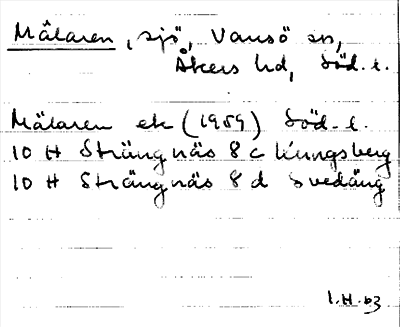 Mälaren, sjö, Vansö sn,
Åkers hd, Söd. l.
Mälaren ek (1959) Söd. l.
10 H Strängnäs 8 c Kungsberg
10 H Strängnäs 8 d Svedäng
I.H. 63